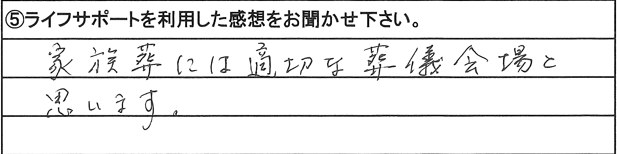 ⑤ライフサポートを利用した感想をお聞かせ下さい。
家族葬には適切な葬儀会場と
思います。